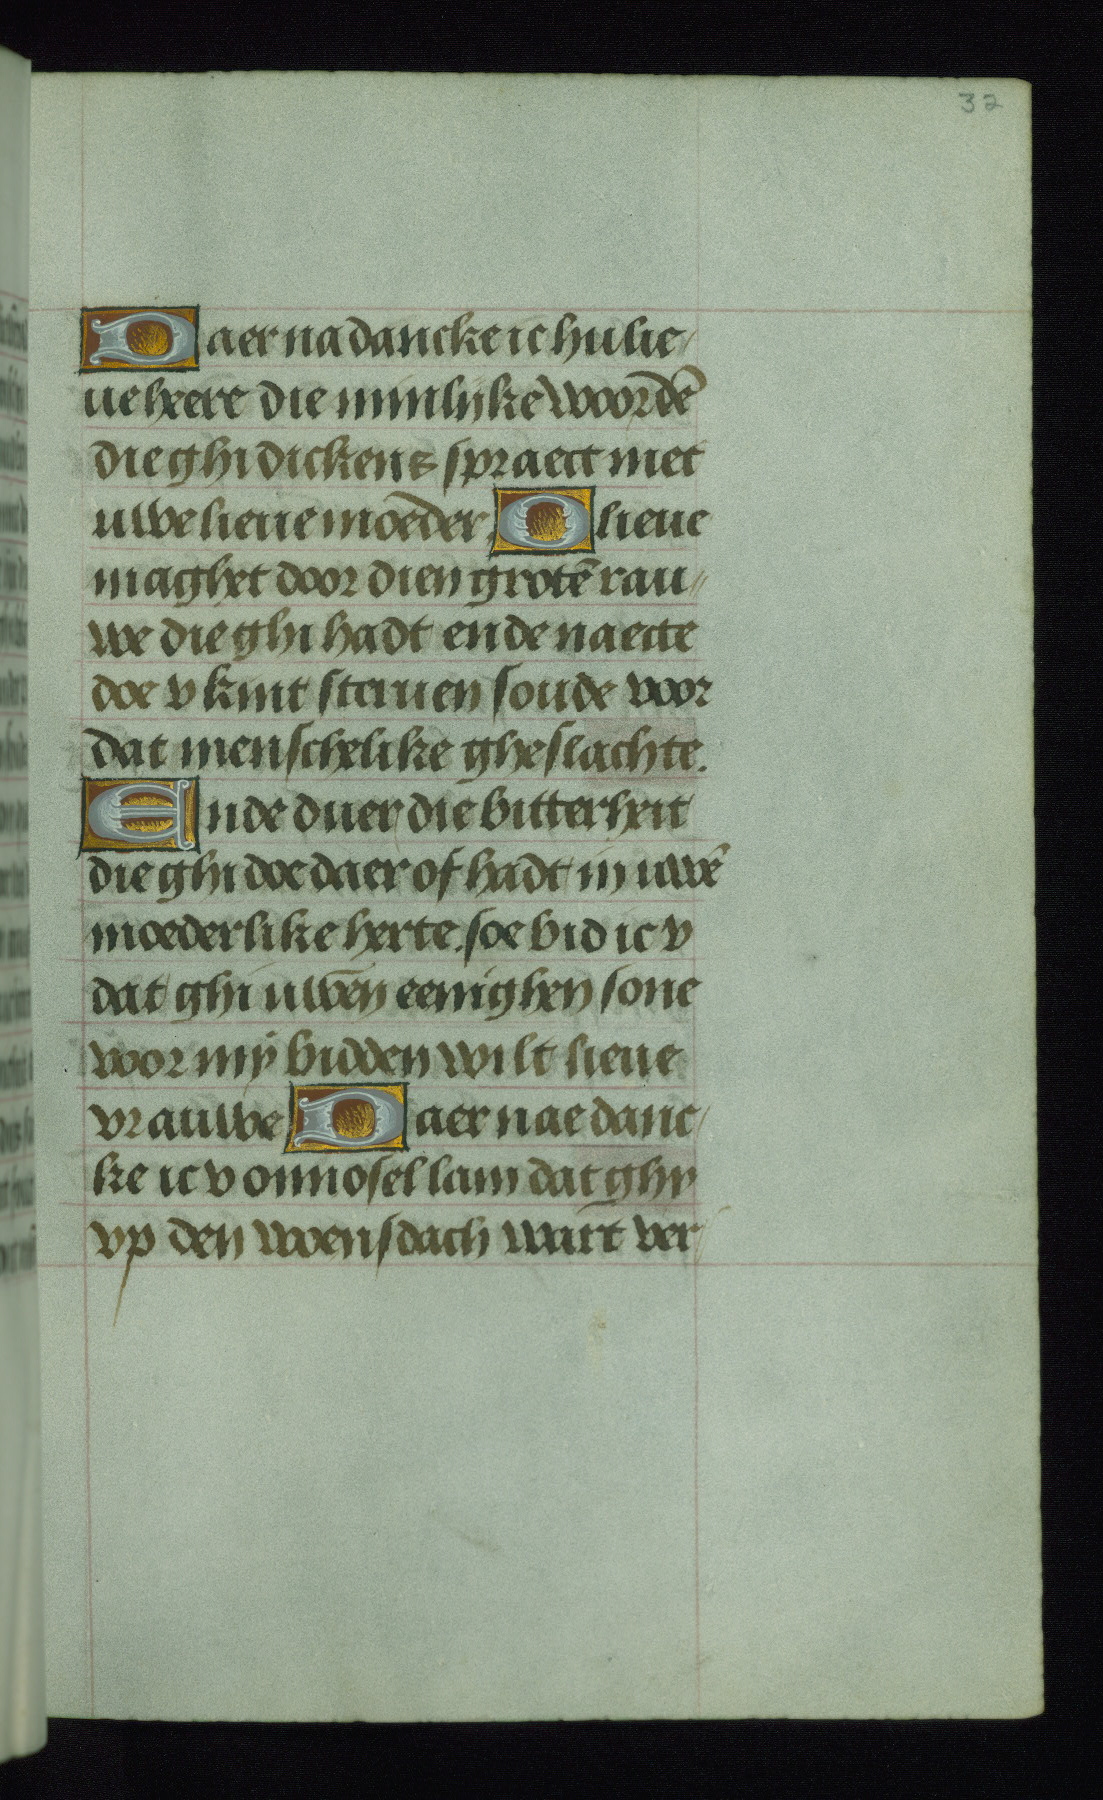 32
Daer na dancke ic hu lie-
ue heere die minlijke woordē
die ghi dickens spraect met
uwe lieue moeder. O lieue
maghet door dien grotē rau-
we die ghi hadt ende naecte
doe v kint steruen soude voor
dat menschelike gheslachte.
Ende duer die bitterheit
die ghi doe daer of hadt in uwē
moederlike herte. soe bid ic v
dat ghi uwen eenighen sone
voor mij bidden wilt lieue
vrauwe Daer nae danc-
ke ic v onnosel lam dat ghy
vp den woensdach wart ver-